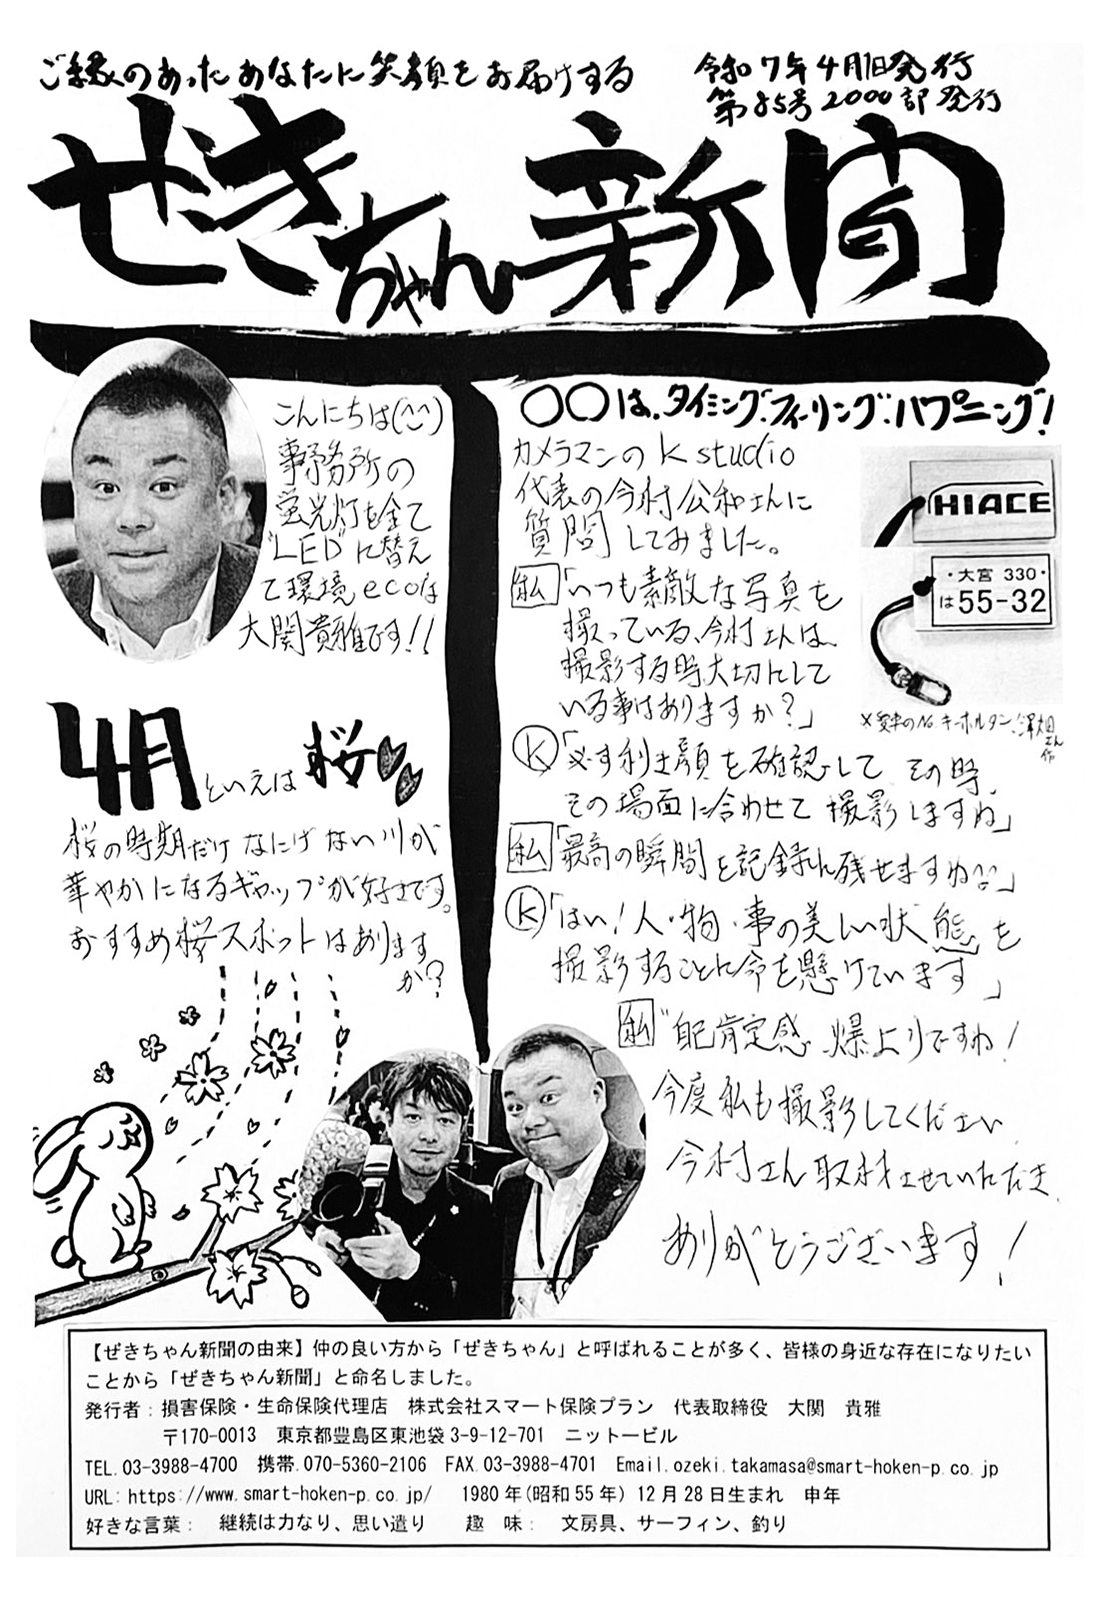 ご縁のあったあなたに笑顔をお届けする
令和7年4月1日発行
第85号2000部発行
ぜきちゃん新聞
こんにちは(^^)
事務所の
蛍光灯を全て
"LED"に替え
て環境ecoな
大関貴雅です!!
4月といえば 桜
桜の時期だけなにげない川が
華やかになるギャップが好きです。
おすすめ桜スポットはあります
か?
〇〇は、タイミング、フィーリング、ハプニング!
カメラマンのK studio
代表の今村公和さんに
質問してみました。
私「いつも素敵な写真を
撮っている、今村さんは、
撮影する時大切にして
いる事はありますか?」
K「必ず利き顔を確認して その時、
その場面に合わせて 撮影しますね」
私「最高の瞬間を記録に残せますね^^」
K「はい!人・物・事の美しい状態を
撮影することに命を懸けています」
私"自己肯定感 爆上りですね!
今度私も撮影してください
今村さん取材させていただき、
ありがとうございます!
HIACE
・大宮 330・
は55-32
※愛車のNo.キーホルダー、澤畑さん作
【ぜきちゃん新聞の由来】仲の良い方から「ぜきちゃん」と呼ばれることが多く、皆様の身近な存在になりたい
ことから「ぜきちゃん新聞」と命名しました。
発行者：損害保険・生命保険代理店　株式会社スマート保険プラン　代表取締役　大関　貴雅
〒170-0013　東京都豊島区東池袋3-9-12-701　ニットービル
TEL.03-3988-4700　携帯.070-5360-2106　FAX.03-3988-4701　Email.ozeki.takamasa@smart-hoken-p.co.jp
URL: https://www.smart-hoken-p.co.jp/　1980年(昭和55年) 12月28日生まれ　申年
好きな言葉：　継続は力なり、思い遣り　　趣　味：　文房具、サーフィン、釣り